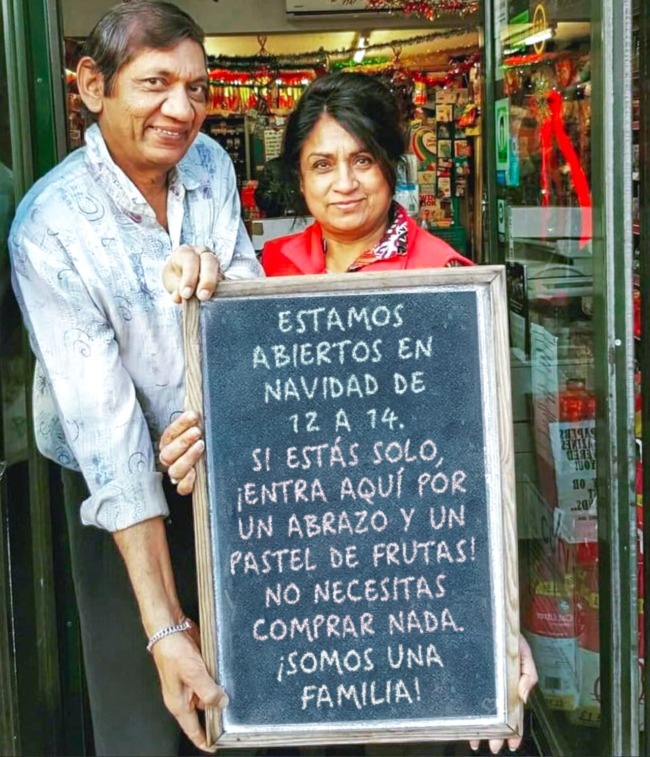 ESTAMOS
ABIERTOS EN
NAVIDAD DE
12 A 14.
SI ESTÁS SOLO,
¡ENTRA AQUÍ POR
UN ABRAZO Y UN
PASTEL DE FRUTAS!
NO NECESITAS
COMPRAR NADA.
¡SOMOS UNA
FAMILIA!